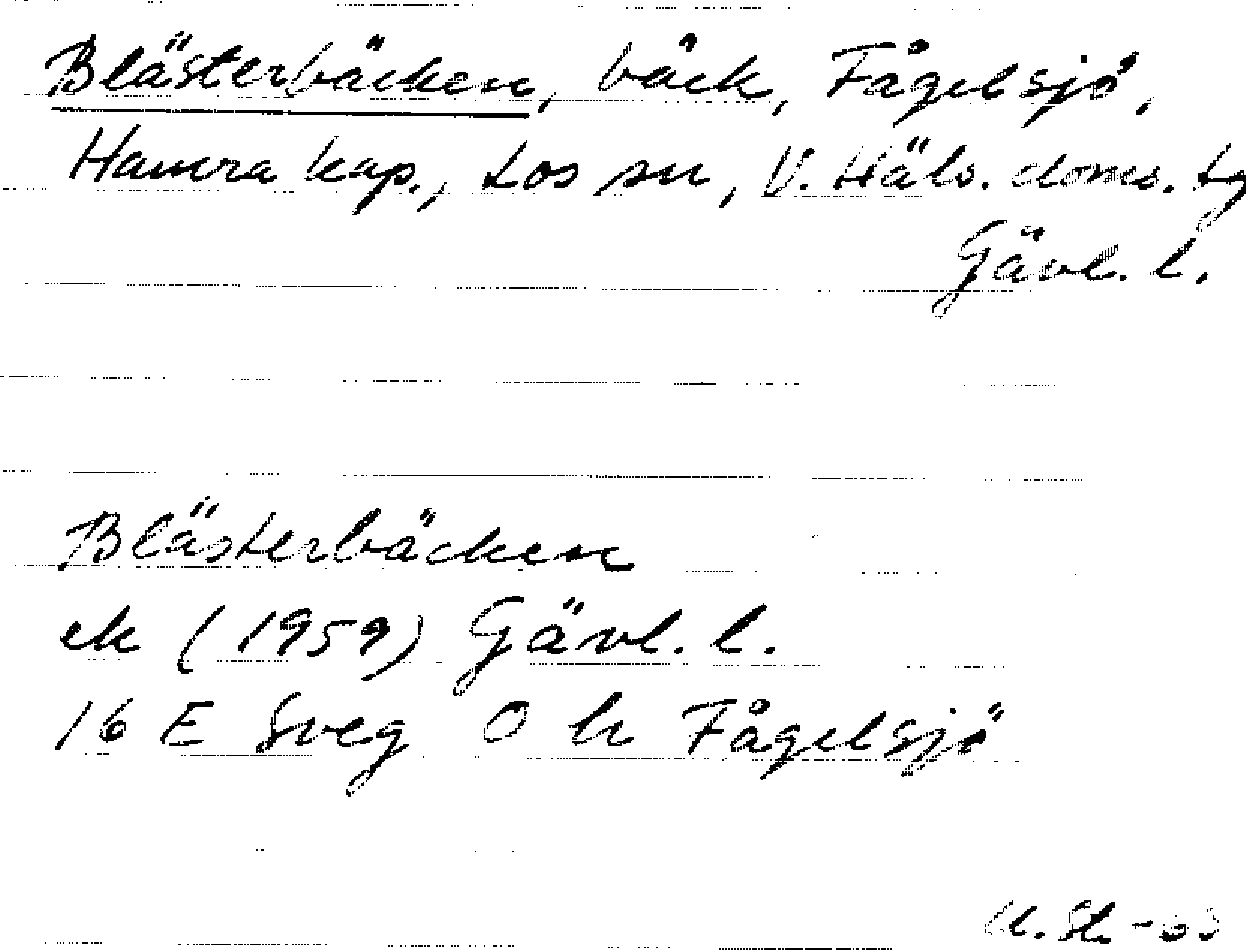 Blästerbäcken, bäck, Fågelsjö,
Hamra kap., Los sn, V. Häls. doms. tg
Gävl. l.
Blästerbäcken
ek (1959) Gävl. l.
16 E Sveg O h Fågelsjö